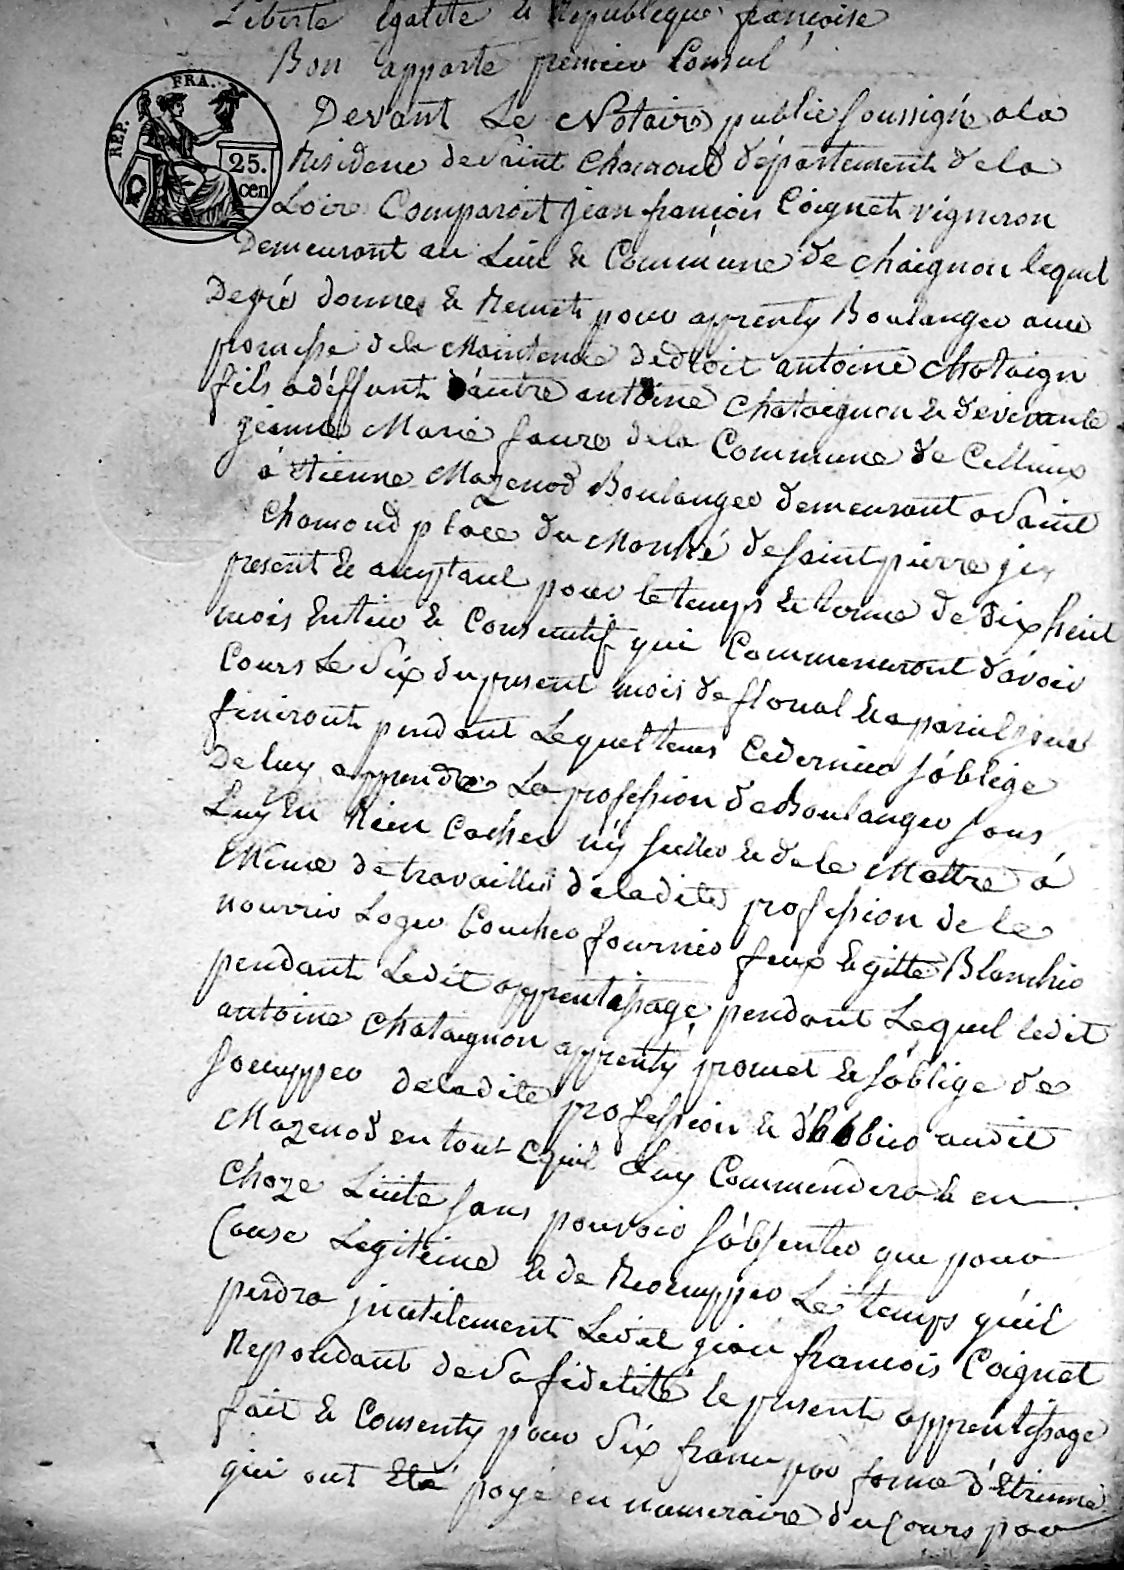 Liberté égalité & République françoise
Bon apparte premier Consul
REP. FRA.
25.
cen
Devant Le Notaire public soussigné a la
Residence de saint chamond département de la
Loire Comparoit jean françois Coignet vigneron
Demeurant au Lieu & Commune de chaignon lequel
De gré donne & Remet pour apprenty Boulanger avec
promesse de la Maintenue de droit antoine chataign
fils a déffunt d'autre antoine chataignon & de vivante
jeanne Marie faure de la Commune de Cellieux
á Etienne Mazenod Boulanger demeurant a Saint
Chamond place du Marché de saint pierre jcy
present & aceptant pour le temps & terme de Dix heuit
mois Entier & Consecutif qui Commenceront d'avoir
Cours Le Six du present mois de floreal & a pareil jour
finiront pendant Lequel tems Ce dernier s'oblige
De luy apprendre La profession de Boulanger sans
Luy En Rien Cacher ny seller & de le Mettre á
Même de travailler de la dite profession de le
nourrir Loger Coucher fournir feux & gitte Blanchir
pendant Ledit apprentissage pendant Lequel ledit
antoine chataignon apprenty promet & s'oblige de
s'occupper de la dite profession & d'hobéir audit
Mazenod en tout C quil Luy Commendera & en
Choze Licite sans pouvoir s'absenter que pour
Cause Legitime & de Reocupper Le temps qu'il
perdra jnutilement Ledit jean francois Coignet
Repondant de Sa fidelitté le present apprentissage
fait & Consenty pour Six franc par forme d'Etrenne
qui ont Eté payé en numeraire du Cours par